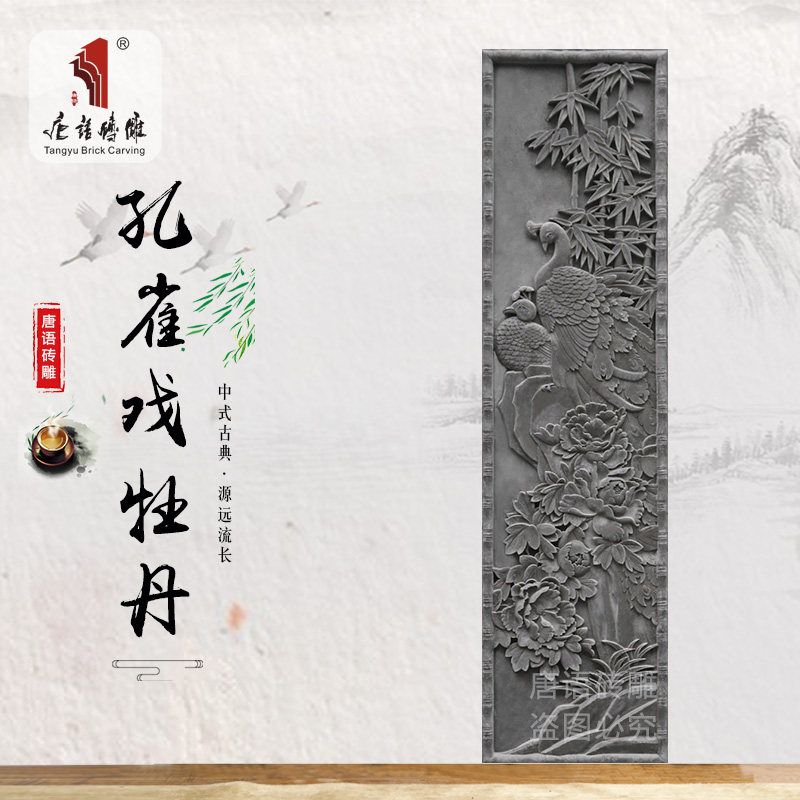 ®
唐語磚雕
Tangyu Brick Carving
孔雀戏牡丹
唐语砖雕
中式古典·源远流长
唐语砖雕
盗图必究